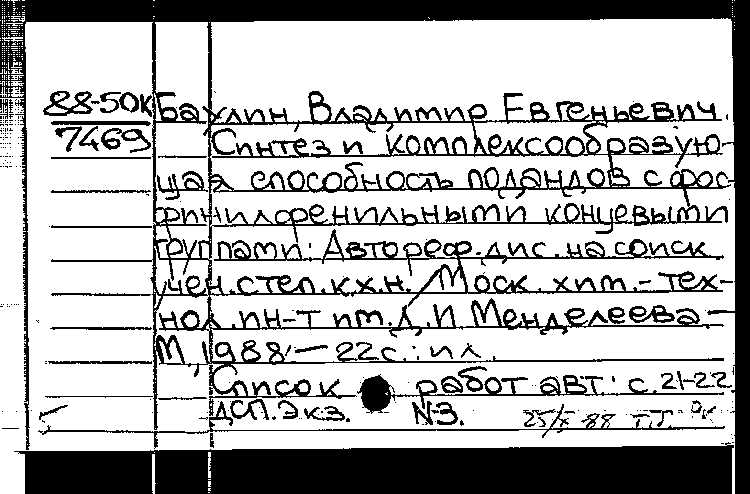 88-50к Бахлин, Владимир Евгеньевич.
7469 Синтез и комплексообразую-
щая способность подандов с фос-
финилфенильными концевыми
группами: Автореф. дис. на соиск.
учен. степ. к.х.н. / Моск. хим.-тех-
нол. ин-т им. Д. И. Менделеева. —
М., 1988. — 22 с.: ил.
Список работ авт.: с. 21-22.
ДСП. Экз. N3.
5 25/X-88 Т.Т.